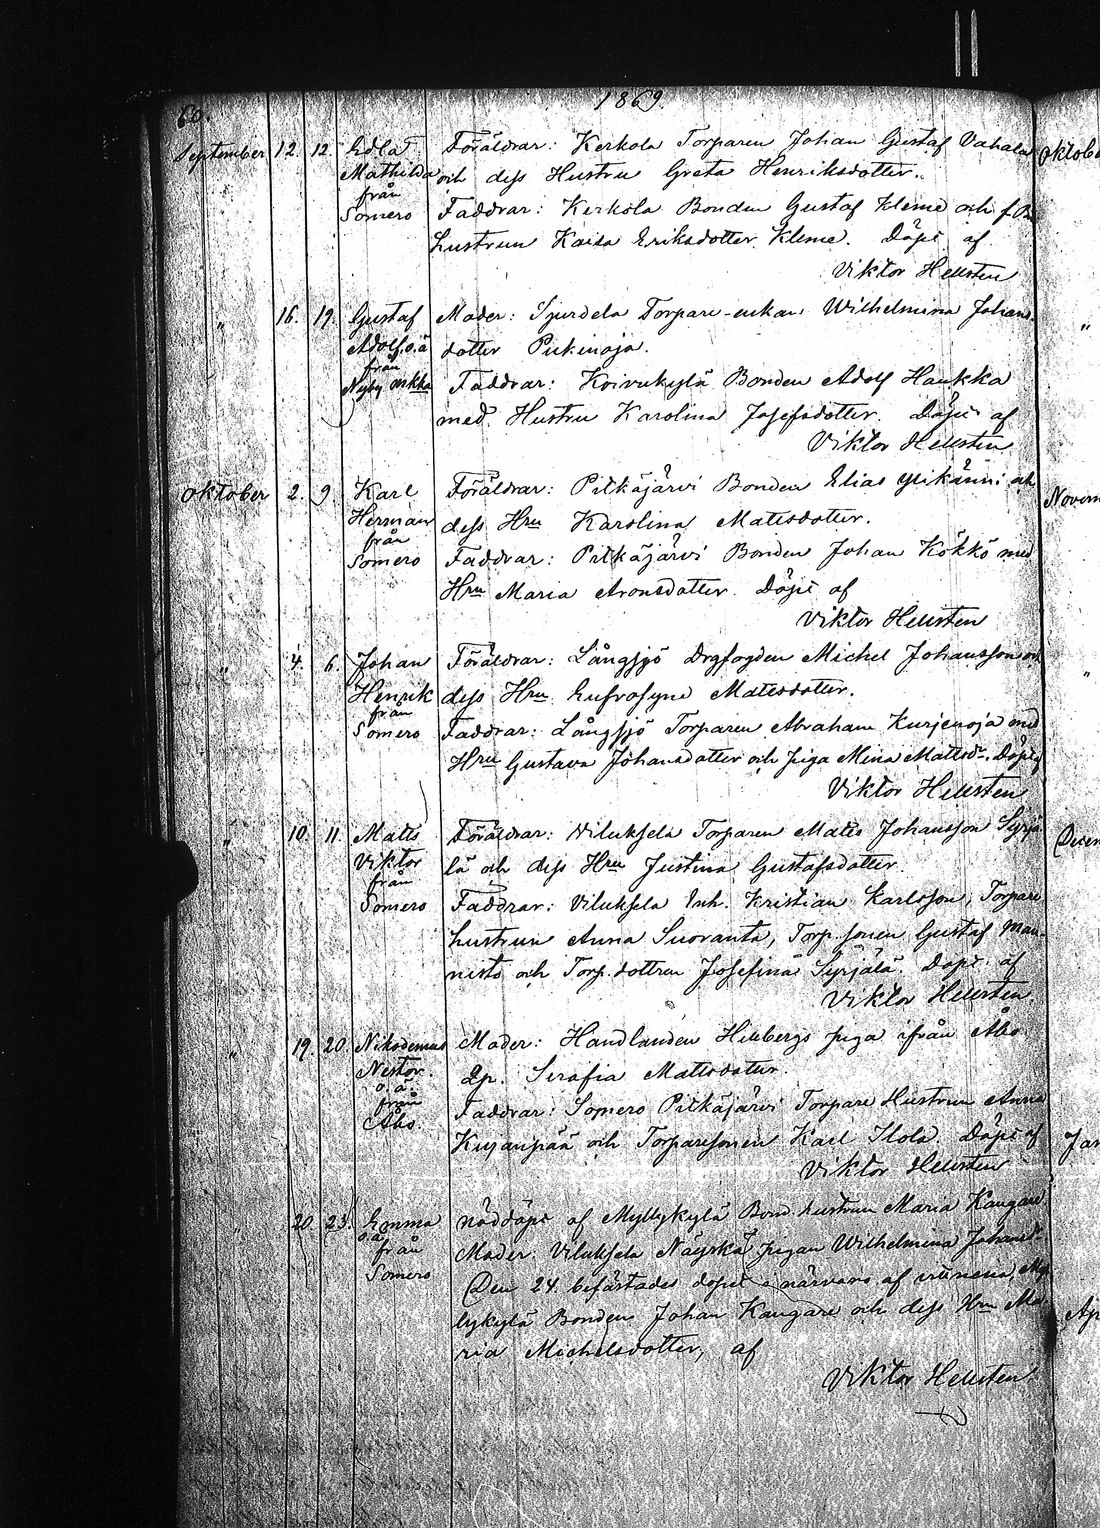 60.
1869.
September 12. 12. Edla Föräldrar: Kerkola Torparen Johan Gustaf Vahala
Mathilda och dess Hustru Greta Henriksdotter.
från
Somero Faddrar: Kerkola Bonden Gustaf Kleme och f. B
hustrun Kaisa Eriksdotter Kleme. Döpt af
Viktor Hellsten
" 16. 19. Gustaf Moder: Sjurdela Torpare-enkan Wilhelmina Johans-
Adolf, o.ä dotter Pukinoja.
från
Nyby Faddrar: Koivukylä Bonden Adolf Haukka
med Hustru Karolina Josefsdotter. Döpt af
Viktor Hellsten
Oktober 2. 9. Karl Föräldrar: Pitkäjärvi Bonden Elias Ylikänni och
Herman dess Hru Karolina Matsdotter.
från
Somero Faddrar: Pitkäjärvi Bonden Johan Kökkö med
Hru Maria Aronsdotter. Döpt af
Viktor Hellsten
" 4. 6. Johan Föräldrar: Långsjö Drgfogden Michel Johansson och
Henrik dess Hru Eufrosyne Matsdotter.
från
Somero Faddrar: Långsjö Torparen Abraham Kurjenoja med
Hru Gustava Johansdotter och piga Mina Mattsdr. Döpt af
Viktor Hellsten
" 10. 11. Matts Föräldrar: Viluksela Torparen Matts Johansson Syrjä-
Viktor lä och dess Hru Justina Gustafsdotter.
från
Somero Faddrar: Viluksela Inh. Kristian Karlsson, Torpare
hustrun Anna Suoranta, Torp. sonen Gustaf Män-
nistö och Torp. dottren Josefina Syrjälä. Döpt af
Viktor Hellsten
" 19. 20. Nikodemus Moder: Handlanden Hellbergs piga ifrån Åbo
Nestor Serafia Mattsdotter.
o.ä.
från Faddrar: Somero Pitkäjärvi Torpare Hustrun Anna
Åbo Kujanpää och Torparesonen Karl Ilola. Döpt af
Viktor Hellsten
" 20. 23. Emma nöddöpt af Myllykylä Bond. hustrun Maria Kangare
o.ä.
från Moder: Viluksela Näyskä pigan Wilhelmina Johansdr
Somero Den 24. befästades dopet i närvaro af vittnena, Myl-
lykylä Bonden Johan Kangare och dess Hru Ma-
ria Michelsdotter, af
Viktor Hellsten
Oktober
"
Novem
"
Decem
Jan
Ap